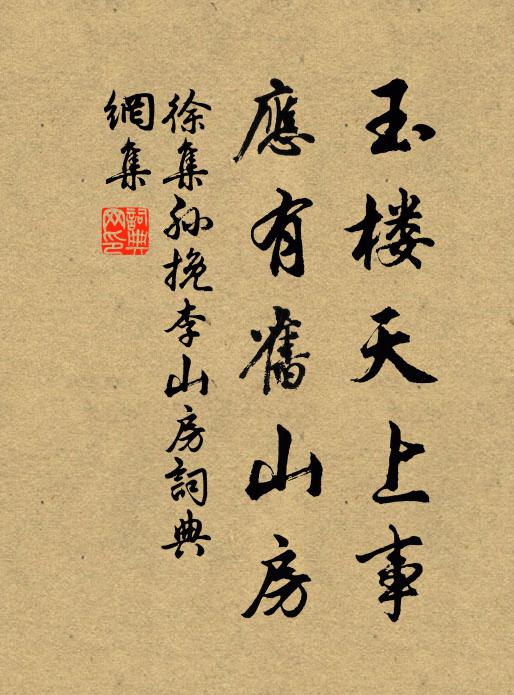 玉楼天上事
應有舊山房
徐集孙挽李山房詞典
網集
詞典網印